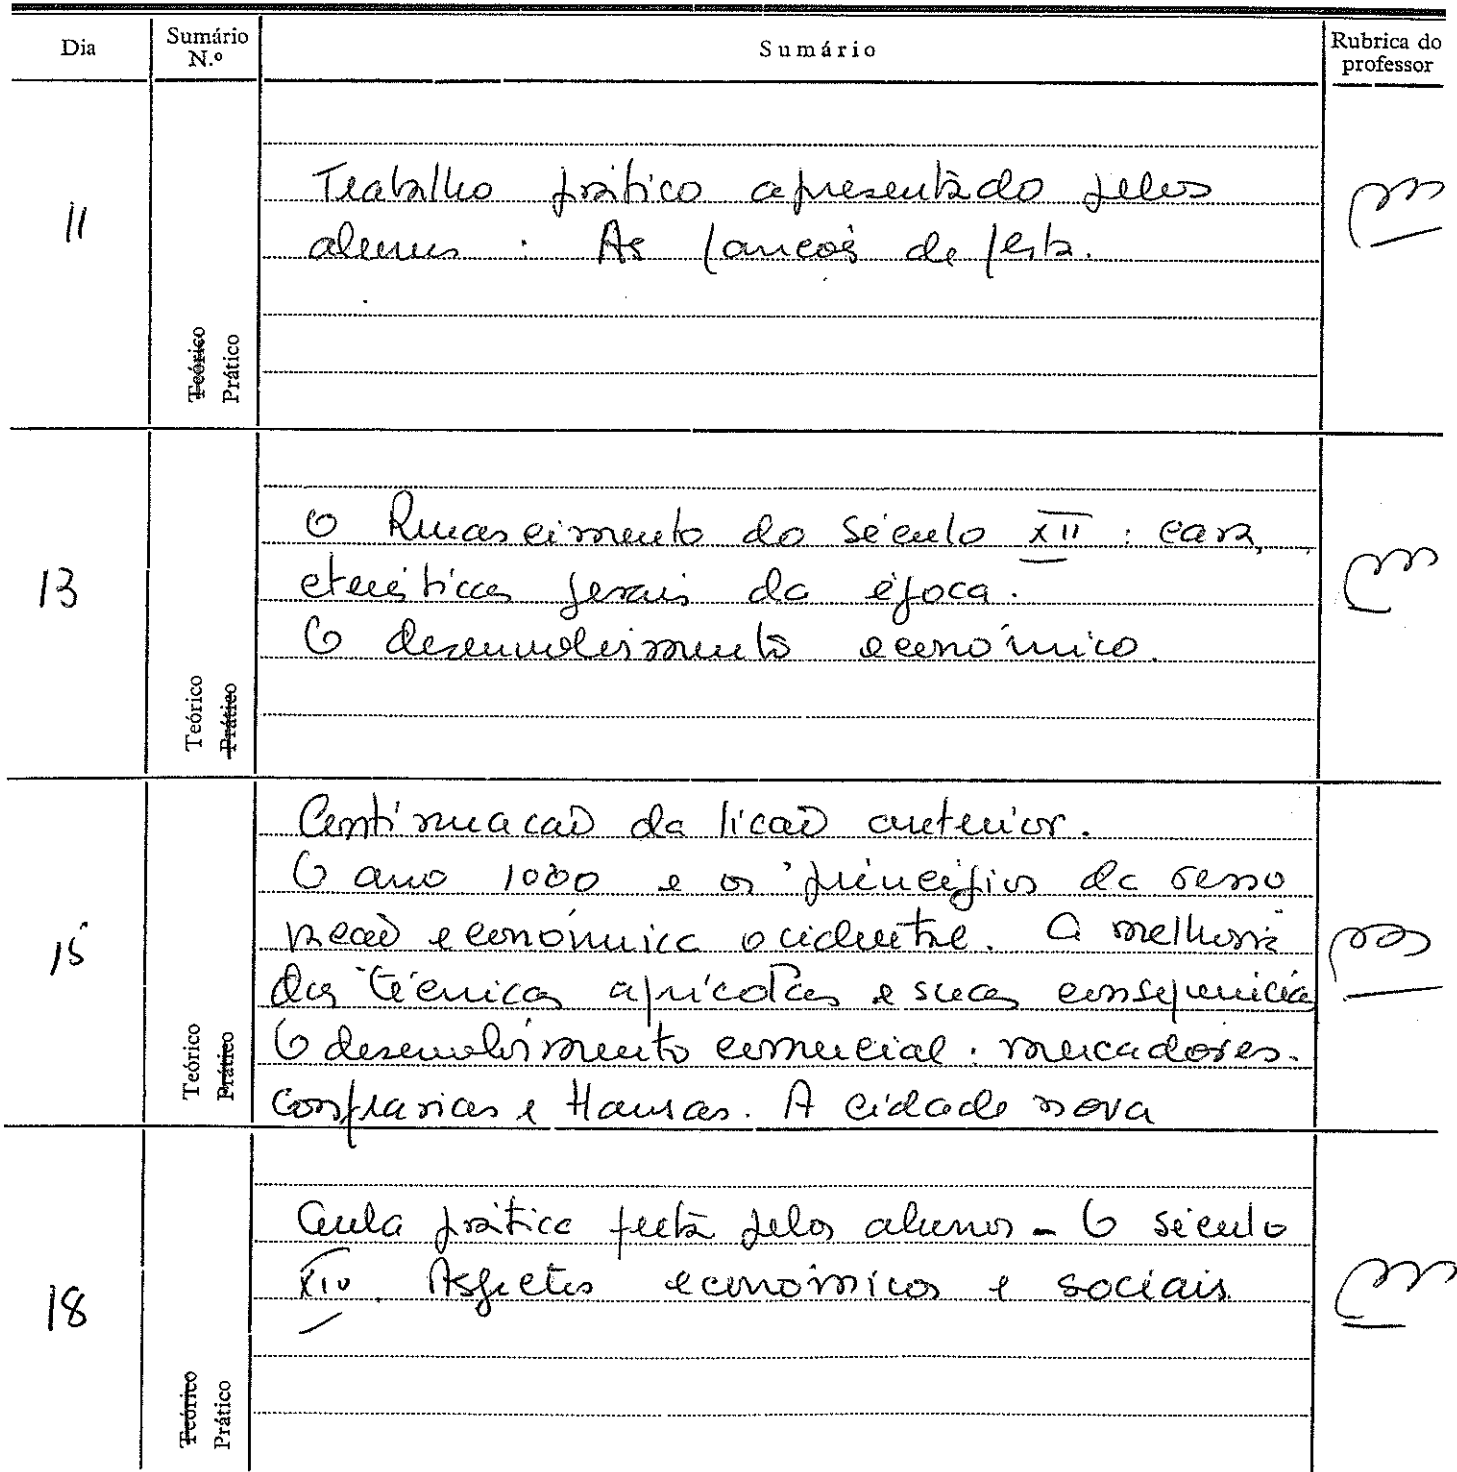 Dia Sumário N.º Sumário Rubrica do professor
11
Trabalho prático apresentado pelos
alunos : As de
Teórico Prático
13
O Renascimento do século XII : cara,
cterísticas gerais da época.
O desenvolvimento económico.
Teórico Prático
15
Continuação da lição anterior.
O ano 1000 e os princípios da reno
vação económica ocidental. A melhoria
das técnicas agrícolas e suas consequência
O desenvolvimento comercial : mercadores.
Confrarias e Hansas. A cidade nova
Teórico Prático
18
Aula prática feita pelos alunos - O século
XIV. Aspectos económicos e sociais
Teórico Prático